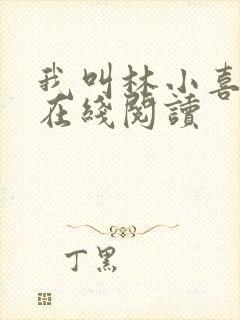 我叫林小喜
在綫閱讀
丁黑